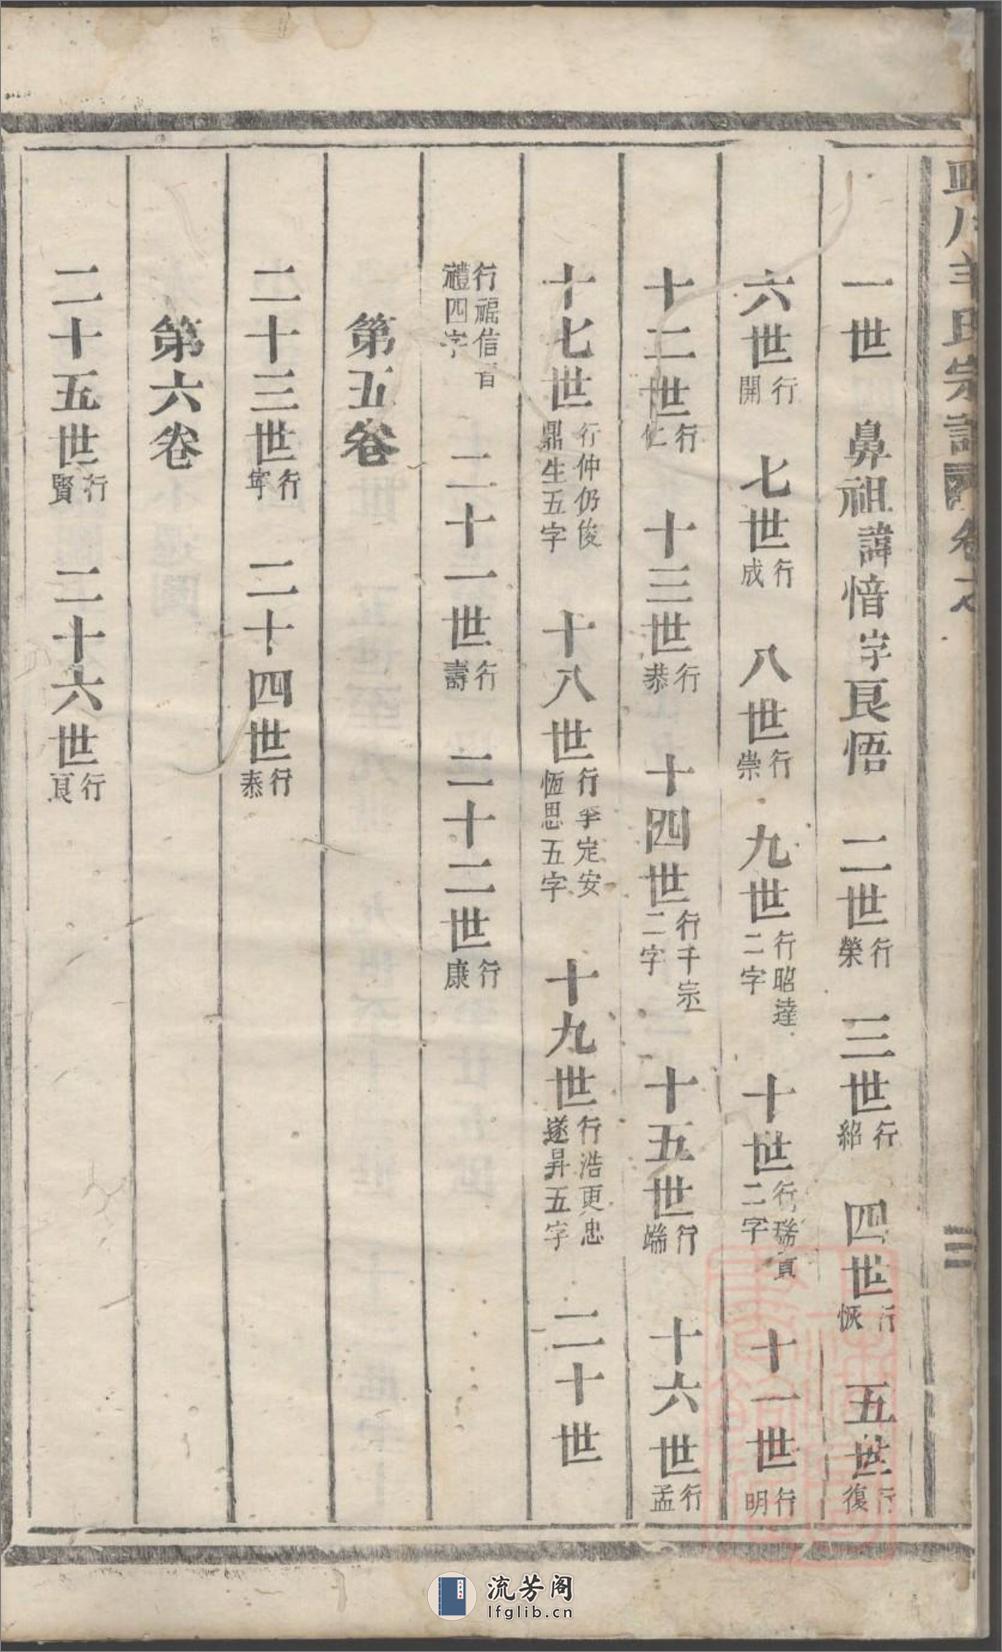 一世 鼻祖諱愔字良悟 二世行榮 三世行紹 四世行恢 五世行復
六世行開 七世行成 八世行崇 九世行昭達二字 十世行瑞貢二字 十一世行明
十二世行仁 十三世行恭 十四世行千宗二字 十五世行端 十六世行孟
十七世行仲仍俊鼎生五字 十八世行季定安恆思五字 十九世行浩更忠遂昇五字 二十世
行福信 禮四字 二十一世行壽 二十二世行康
第五卷
二十三世行寧 二十四世行泰
第六卷
二十五世行賢 二十六世行良
流芳阁
lfglib.cn